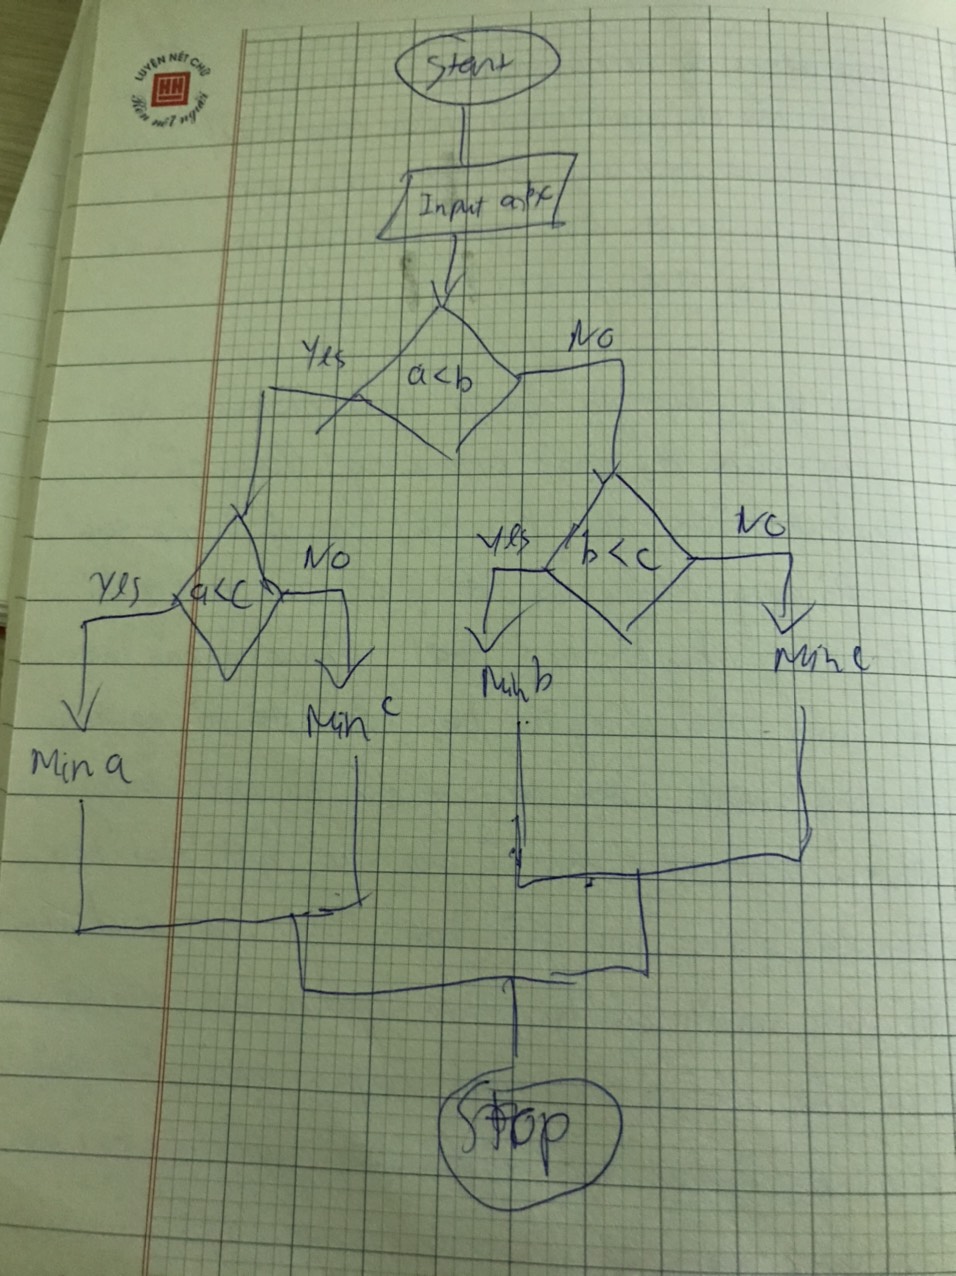 LUYỆN NÉT CHỮ
HN
Rèn nết người
Start
Input a,b,c
Yes
a<b
No
Yes
a<c
No
Yes
b<c
No
Min a
Min c
Min b
Min c
Stop